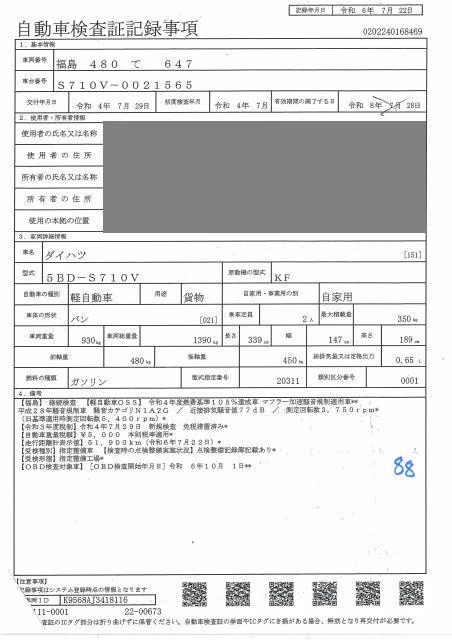 記録年月日 令和 6年 7月 22日
自動車検査証記録事項 0202240168469
1. 基本情報
車両番号 福島 480 て 647
車台番号 S710V-0021565
交付年月日 令和 4年 7月 29日 初度検査年月 令和 4年 7月 有効期間の満了する日 令和 8年 7月 28日
2. 使用者・所有者情報
使用者の氏名又は名称
使用者の住所
所有者の氏名又は名称
所有者の住所
使用の本拠の位置
3. 車両詳細情報
車名 ダイハツ [151]
型式 5BD-S710V 原動機の型式 KF
自動車の種別 軽自動車 用途 貨物 自家用・事業用の別 自家用
車体の形状 バン [021] 乗車定員 2人 最大積載量 350kg
車両重量 930kg 車両総重量 1390kg 長さ 339cm 幅 147cm 高さ 189cm
前軸重 480kg 後軸重 450kg 総排気量又は定格出力 0.65 L
燃料の種類 ガソリン 型式指定番号 20311 類別区分番号 0001
4. 備考
【福島】 継続検査 【軽自動車OSS】 令和4年度燃費基準105%達成車 マフラー加速騒音規制車**
平成28年騒音規制車 騒音カテゴリN1A2G / 近接排気騒音値77dB / 測定回転数3,750rpm*
(旧基準適用時測定回転数5,400rpm)*
【令和3年度税制】令和4年7月29日 新規検査 免税措置済み*
【自動車重量税額】¥5,000 本則税率適用*
【走行距離計表示値】51,900km(令和6年7月22日)*
【受検種別】指定整備車 【検査時の点検整備実施状況】点検整備記録簿記載あり*
【受検形態】指定整備工場*
【OBD検査対象車】 [OBD検査開始年月日]令和 6年10月 1日**
88
【注意事項】
記録事項はシステム登録時点の情報となります
両ID K9568AJ3418116
111-0001 22-00673
査証のICタグ部分は折り曲げずに保管ください。自動車検査証の券面やICタグにき損がある場合、無効となり再交付が必要です。